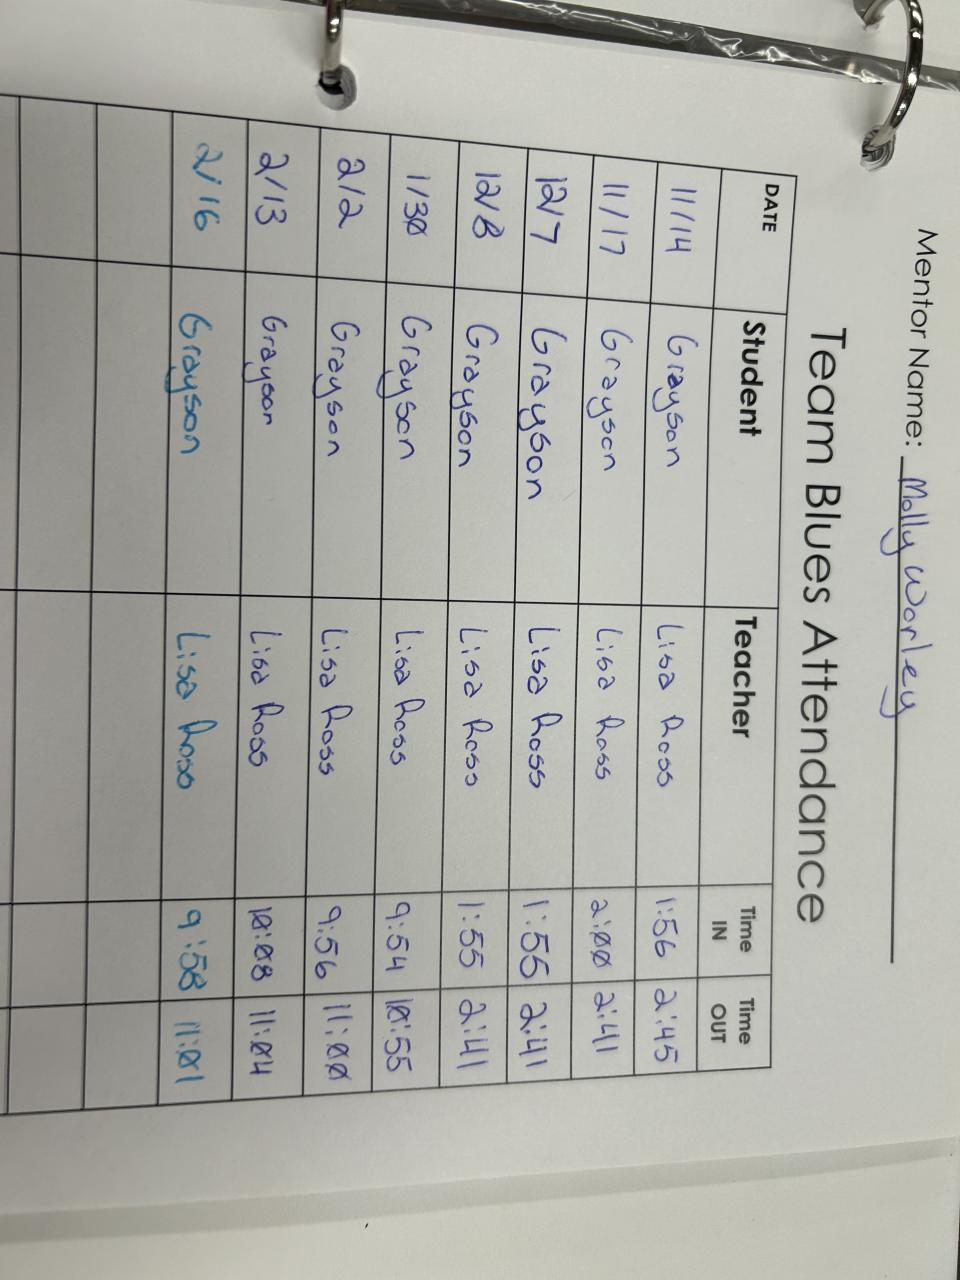 Mentor Name: Molly Worley
Team Blues Attendance
DATE Student Teacher Time IN Time OUT
11/14 Grayson Lisa Ross 1:56 2:45
11/17 Grayson Lisa Ross 2:00 2:41
12/7 Grayson Lisa Ross 1:55 2:41
12/8 Grayson Lisa Ross 1:55 2:41
1/30 Grayson Lisa Ross 9:54 10:55
2/2 Grayson Lisa Ross 9:56 11:00
2/13 Grayson Lisa Ross 10:08 11:04
2/16 Grayson Lisa Ross 9:58 11:01